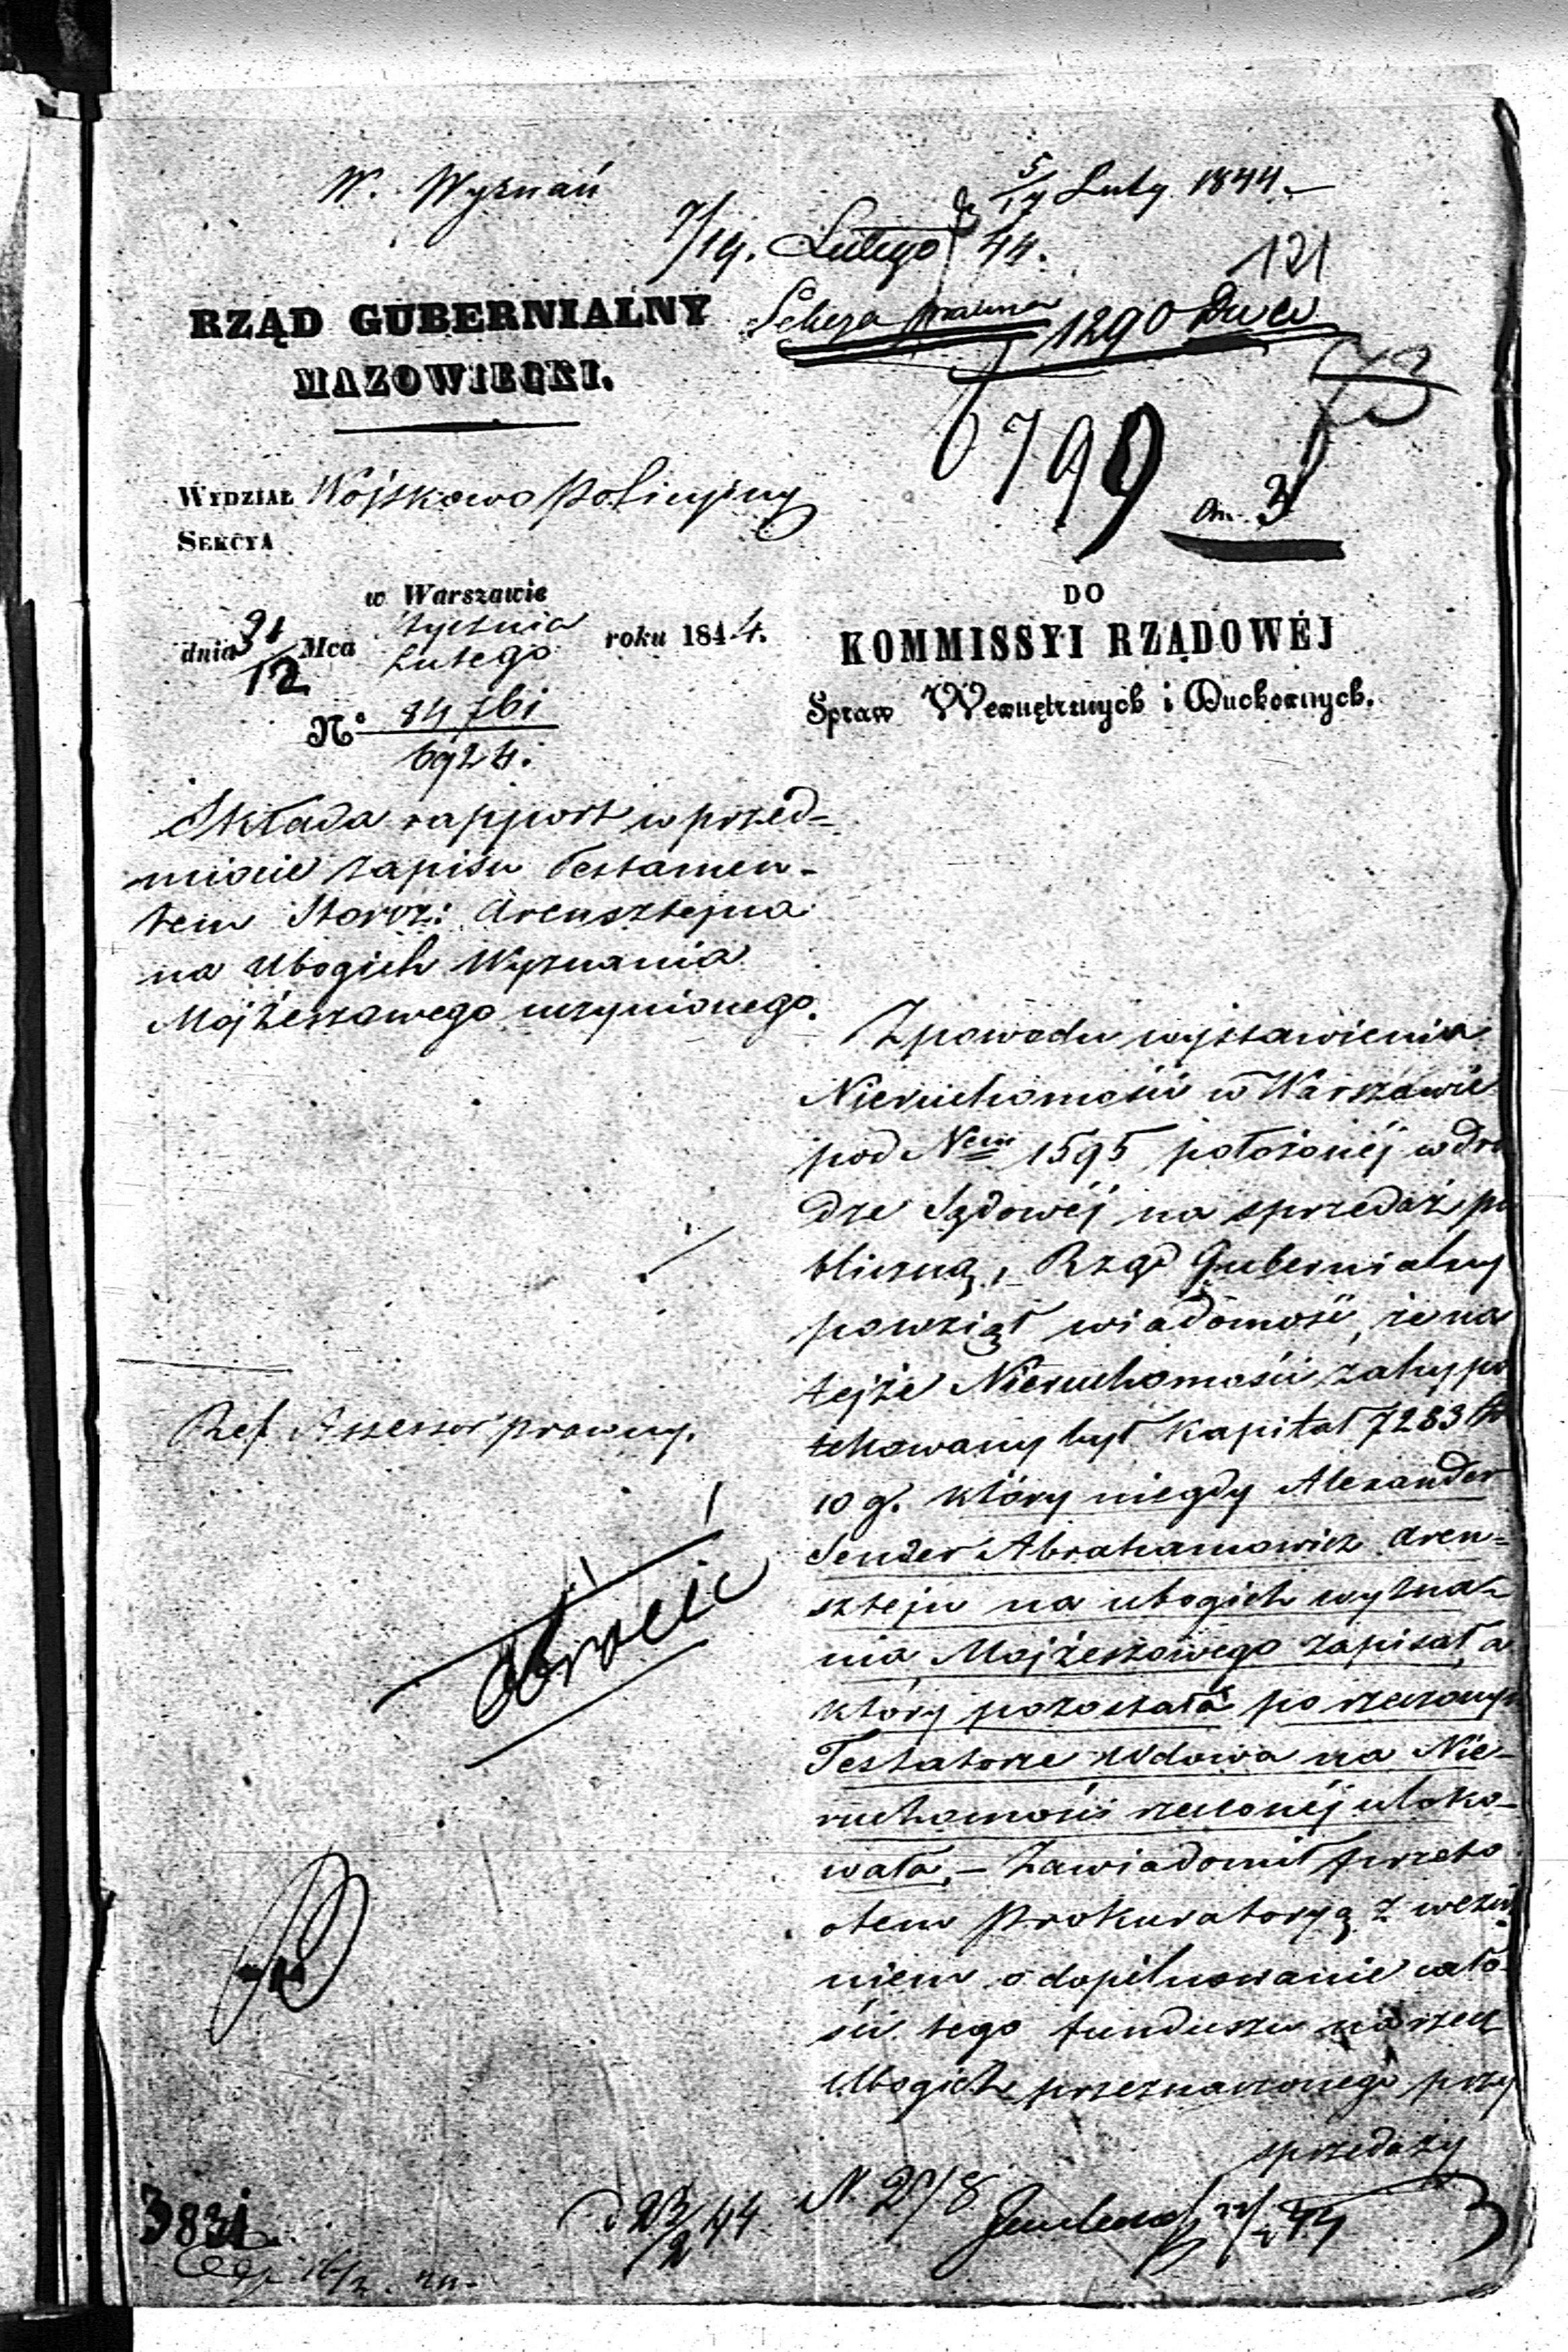 W. Wyznań
5/17 Luty 1844.
7/19. Lutego 44.
121
Sekcya prawna 1290
73
6799
3
RZĄD GUBERNIALNY
MAZOWIECKI.
WYDZIAŁ Wojskowo Policyjny
SEKCYA
w Warszawie
dnia 31/12 Mca Stycznia Lutego roku 1844.
N° 84761
6924.
DO
KOMMISSYI RZĄDOWÉJ
Spraw Wewnętrznych i Duchownych.
Składa rapport w przed=
miocie zapisu Testamen-
tem Staroz: Arensztejna
na Ubogich Wyznania
Mojżeszowego uczynionego.
Z powodu wystawienia
Nieruchomości w Warszawie
pod Nem 1595 położonéj w dro
dze Sądowéj na sprzedaż pu
bliczną, Rząd Gubernialny
powziął wiadomość, że na
tejże Nieruchomości zahypo
tekowany był Kapitał 7283
10 g. który niegdy Alexander
Sender Abrahamowicz Aren=
sztejn na ubogich wyzna=
nia Mojżeszowego zapisał, a
który pozostała po rzeczonym
Testatorze Wdowa na Nie-
ruchomości rzeczonéj uloko-
wała. – Zawiadomił przeto
otem Prokuratoryą z wezwa
niem o dopilnowanie cało-
ści tego funduszu na rzecz
Ubogich przeznaczonego przy
sprzedaży
Ref. Assessor prawny.
obrócić
3831
d 23/2 44
N. 278
22/2 44
3